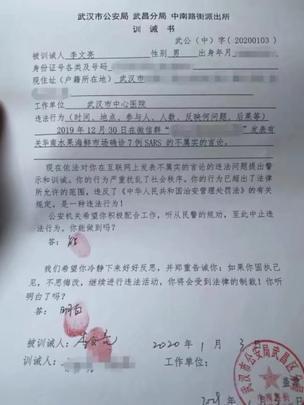 武汉市公安局 武昌分局 中南路街派出所
训 诫 书
武公(中)字(20200103)
被训诫人 李文亮 性别 男 出身年月
身份证种类及号码
现住址(户籍所在地) 武汉市
工作单位 武汉市中心医院
违法行为(时间、地点、参与人、人数、反映何问题、后果等)
2019年12月30日在微信群“ ”发表有
关华南水果海鲜市场确诊7例SARS的不属实的言论。
现在依法对你在互联网上发表不属实的言论的违法问题提出警
示和训诫。你的行为严重扰乱了社会秩序。你的行为已超出了法律
所允许的范围,违反了《中华人民共和国治安管理处罚法》的有关
规定,是一种违法行为!
公安机关希望你积极配合工作,听从民警的规劝,至此中止违
法行为。你能做到吗?
答: 能
我们希望你冷静下来好好反思,并郑重告诫你:如果你固执己
见,不思悔改,继续进行违法活动,你将会受到法律的制裁!你听
明白了吗?
答: 明白
被训诫人: 李文亮 2020年 1月 3
训诫人: 工作单位:
武汉市公安局武昌区